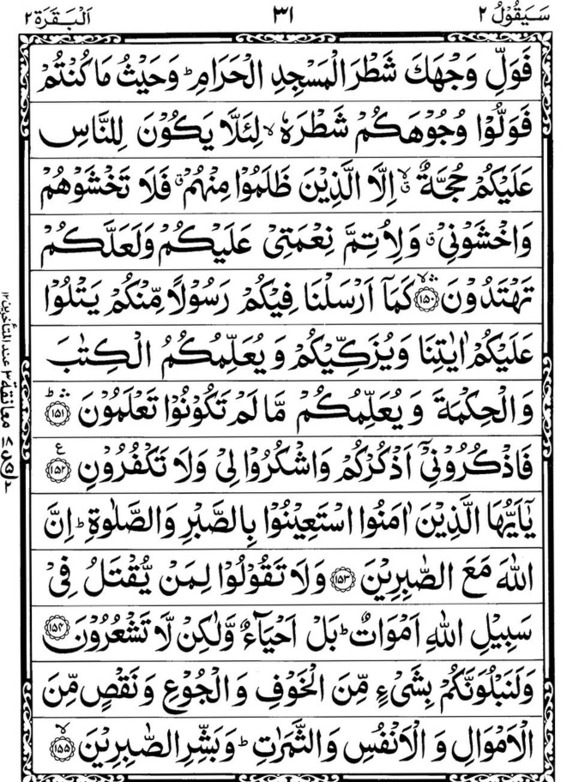 سَيَقُوْلُ ٢ ٣١ اَلْبَقَرَة ٢
فَوَلِّ وَجْهَكَ شَطْرَ الْمَسْجِدِ الْحَرَامِ ؕ وَحَيْثُ مَا كُنْتُمْ
فَوَلُّوْا وُجُوْهَكُمْ شَطْرَهٗ ۙ لِئَلَّا يَكُوْنَ لِلنَّاسِ
عَلَيْكُمْ حُجَّةٌ ۙۗ اِلَّا الَّذِيْنَ ظَلَمُوْا مِنْهُمْ ۗ فَلَا تَخْشَوْهُمْ
وَاخْشَوْنِيْ ۗ وَلِاُتِمَّ نِعْمَتِيْ عَلَيْكُمْ وَلَعَلَّكُمْ
تَهْتَدُوْنَ ۙۛ ﴿١٥٠﴾ كَمَاۤ اَرْسَلْنَا فِيْكُمْ رَسُوْلًا مِّنْكُمْ يَتْلُوْا
عَلَيْكُمْ اٰيٰتِنَا وَيُزَكِّيْكُمْ وَيُعَلِّمُكُمُ الْكِتٰبَ
وَالْحِكْمَةَ وَيُعَلِّمُكُمْ مَّا لَمْ تَكُوْنُوْا تَعْلَمُوْنَ ؕۛ ﴿١٥١﴾
فَاذْكُرُوْنِيْۤ اَذْكُرْكُمْ وَاشْكُرُوْا لِيْ وَلَا تَكْفُرُوْنِ ﴿١٥٢﴾ ع
يٰۤاَيُّهَا الَّذِيْنَ اٰمَنُوا اسْتَعِيْنُوْا بِالصَّبْرِ وَالصَّلٰوةِ ؕ اِنَّ
اللّٰهَ مَعَ الصّٰبِرِيْنَ ﴿١٥٣﴾ وَلَا تَقُوْلُوْا لِمَنْ يُّقْتَلُ فِيْ
سَبِيْلِ اللّٰهِ اَمْوَاتٌ ؕ بَلْ اَحْيَآءٌ وَّلٰكِنْ لَّا تَشْعُرُوْنَ ﴿١٥٤﴾
وَلَنَبْلُوَنَّكُمْ بِشَيْءٍ مِّنَ الْخَوْفِ وَالْجُوْعِ وَنَقْصٍ مِّنَ
الْاَمْوَالِ وَالْاَنْفُسِ وَالثَّمَرٰتِ ؕ وَبَشِّرِ الصّٰبِرِيْنَ ۙ ﴿١٥٥﴾
معانقة ٣ عند المتأخرين ١٢